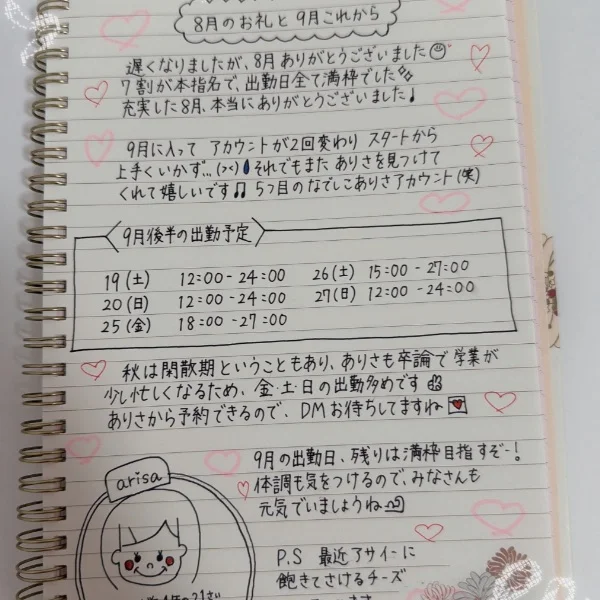 8月のお礼と 9月これから
遅くなりましたが、8月 ありがとうございました
7割が本指名で、出勤日全て満枠でした
充実した8月、本当にありがとうございました♩
9月に入って アカウントが2回変わり スタートから
上手くいかず...(><) それでもまた ありさを見つけて
くれて嬉しいです♫ 5つ目のなでしこありさアカウント(笑)
9月後半の出勤予定
19(土) 12:00-24:00 26(土) 15:00-27:00
20(日) 12:00-24:00 27(日) 12:00-24:00
25(金) 18:00-27:00
秋は閑散期ということもあり、ありさも卒論で学業が
少し忙しくなるため、金・土・日の出勤多めです
ありさから予約できるので、DMお待ちしてますね
9月の出勤日、残りは満枠目指すぞー!
体調も気をつけるので、みなさんも
元気でいましょうね
arisa
P.S 最近アサイーに
飽きてさけるチーズ